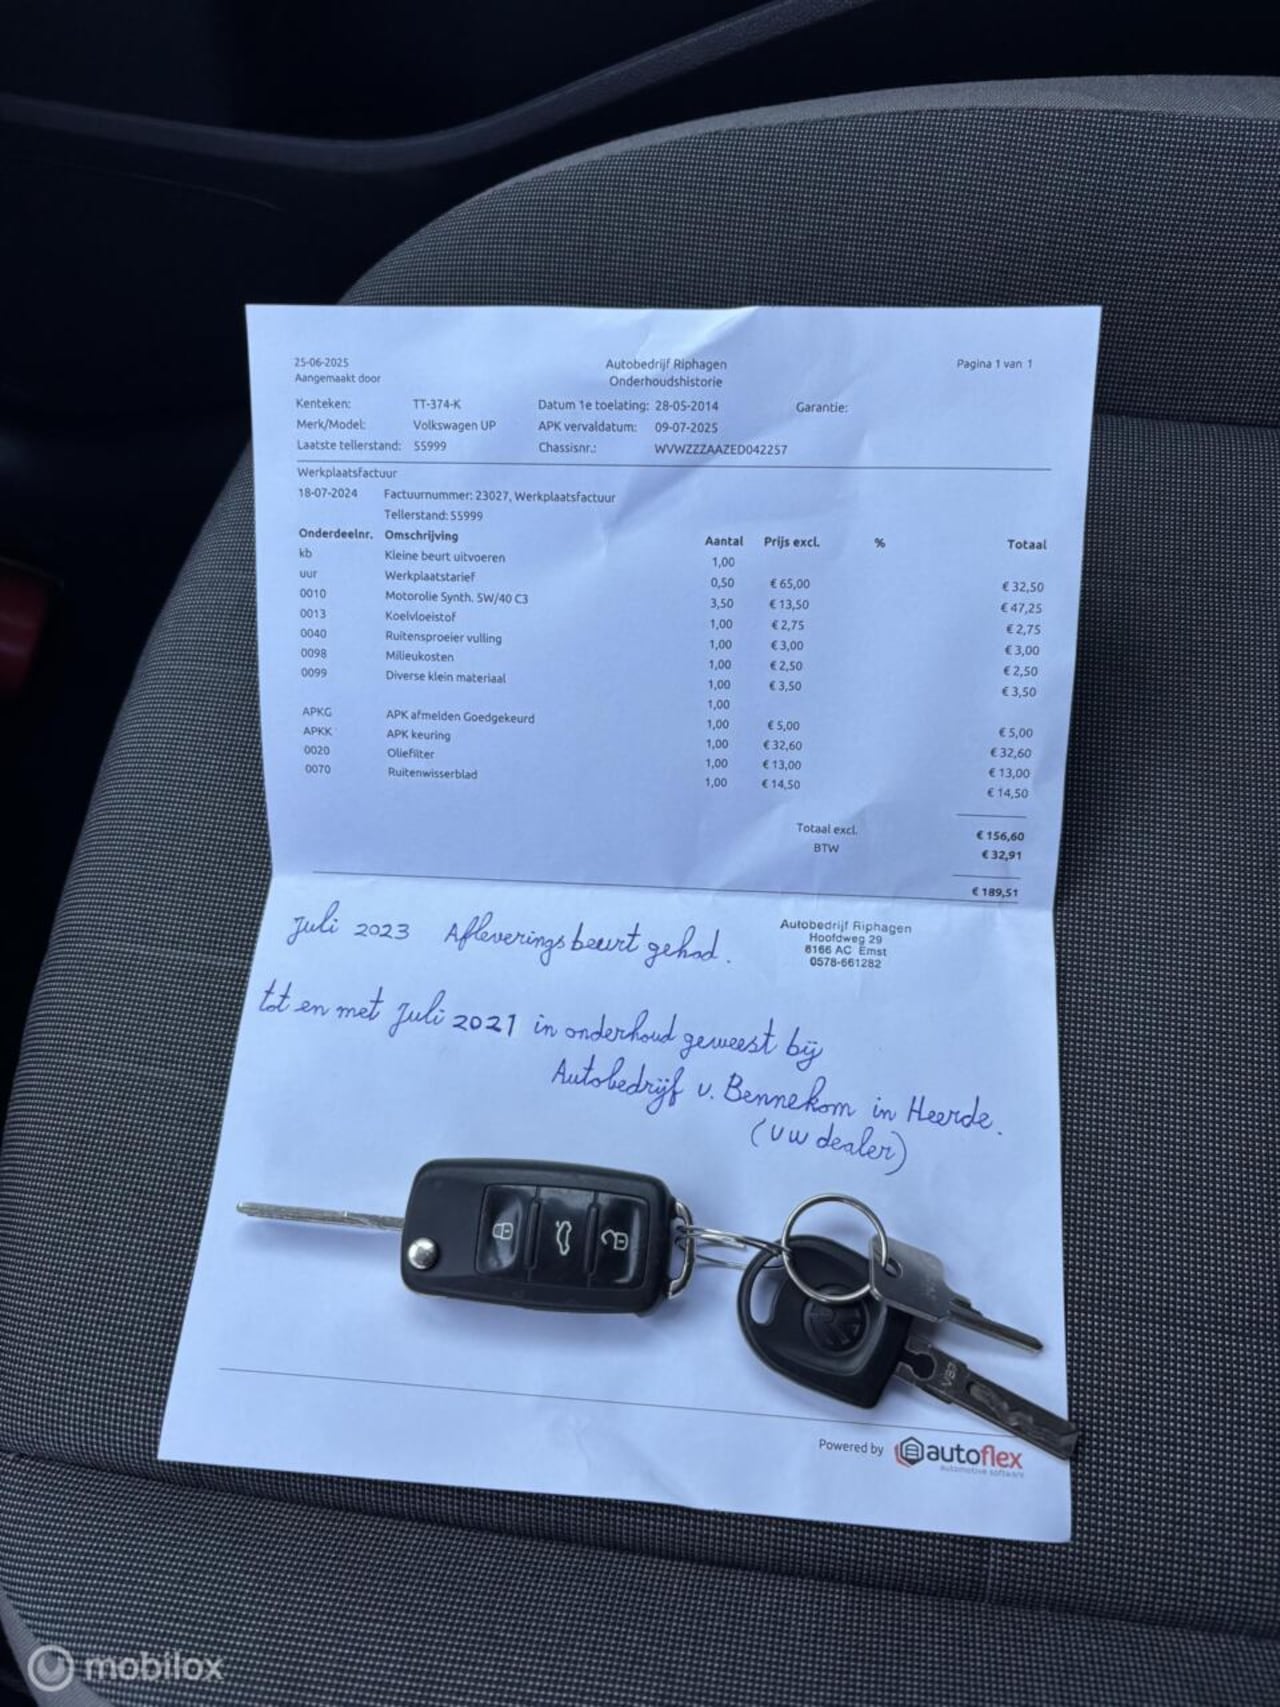 25-06-2025 Autobedrijf Riphagen Pagina 1 van 1
Aangemaakt door Onderhoudshistorie
Kenteken: TT-374-K Datum 1e toelating: 28-05-2014 Garantie:
Merk/Model: Volkswagen UP APK vervaldatum: 09-07-2025
Laatste tellerstand: 55999 Chassisnr.: WVWZZZAAZED042257
Werkplaatsfactuur
18-07-2024 Factuurnummer: 23027, Werkplaatsfactuur
Tellerstand: 55999
Onderdeelnr. Omschrijving Aantal Prijs excl. % Totaal
kb Kleine beurt uitvoeren 1,00
uur Werkplaatstarief 0,50 € 65,00 € 32,50
0010 Motorolie Synth. 5W/40 C3 3,50 € 13,50 € 47,25
0013 Koelvloeistof 1,00 € 2,75 € 2,75
0040 Ruitensproeier vulling 1,00 € 3,00 € 3,00
0098 Milieukosten 1,00 € 2,50 € 2,50
0099 Diverse klein materiaal 1,00 € 3,50 € 3,50
1,00
APKG APK afmelden Goedgekeurd 1,00 € 5,00 € 5,00
APKK APK keuring 1,00 € 32,60 € 32,60
0020 Oliefilter 1,00 € 13,00 € 13,00
0070 Ruitenwisserblad 1,00 € 14,50 € 14,50
Totaal excl. € 156,60
BTW € 32,91
€ 189,51
Juli 2023 Afleveringsbeurt gehad.
Autobedrijf Riphagen
Hoofdweg 29
8166 AC Emst
0578-661282
tot en met Juli 2021 in onderhoud geweest bij
Autobedrijf v. Bennekom in Heerde.
(VW dealer)
Powered by autoflex
automotive software
mobilox